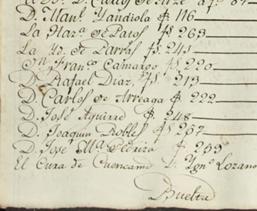 D. Man.l Yandiola $ 116
La Mar.a de Patos $ 263
La Yd. de Parras $ 241
D.n Fran.co Camargo $ 220
D. Rafael Diaz, $ 213
D. Carlos de Arreaga $ 222
D. José Aguirre $ 248
D. Joaquin Robles $ 257
D. José M.a
El Cura de Cuencamé D. Ygn.o Lozano
Buelta